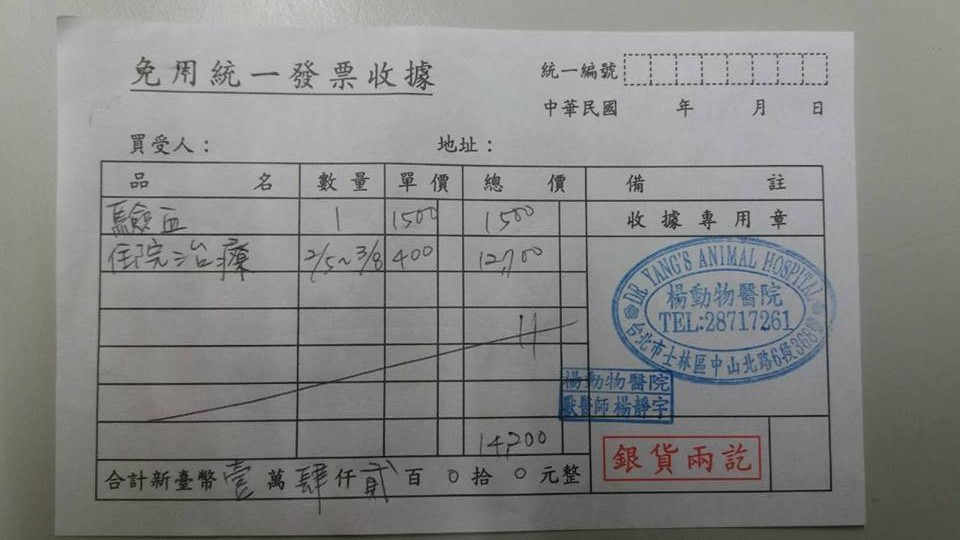 免用統一發票收據
統一編號
中華民國 年 月 日
買受人： 地址：
品名 數量 單價 總價 備註
驗血 1 1500 1500 收據專用章
住院治療 2/5~3/8 400 12,700
DR YANG'S ANIMAL HOSPITAL
楊動物醫院
TEL:28717261
台北市士林區中山北路6段368號
楊動物醫院
獸醫師 楊靜宇
14,200
銀貨兩訖
合計新臺幣壹萬肆仟貳百0拾0元整